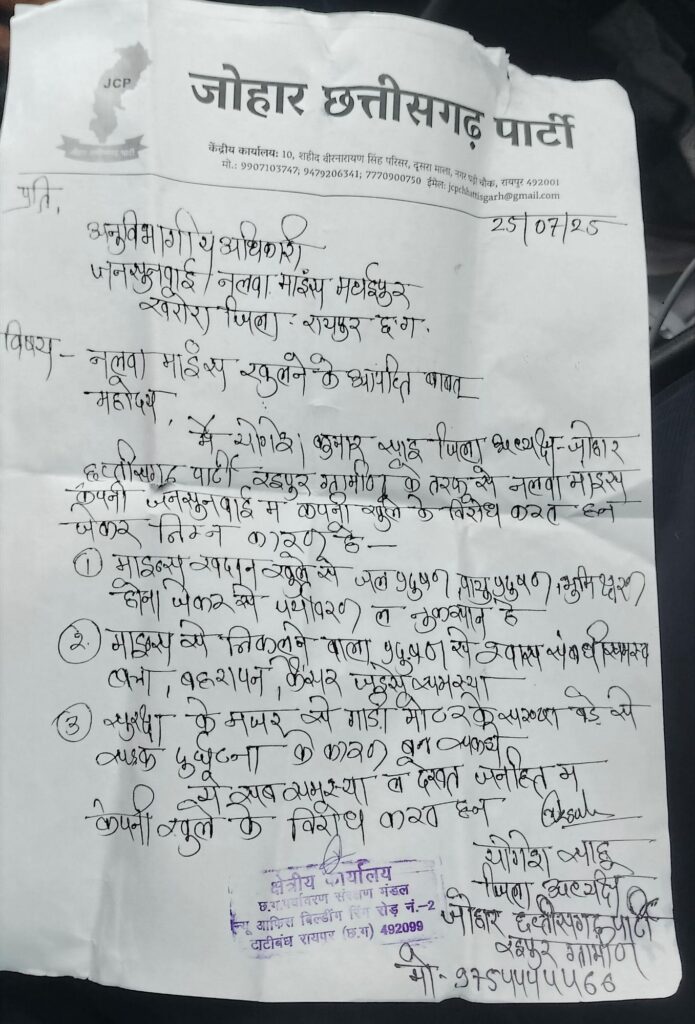 JCP
जोहार छत्तीसगढ़ पार्टी
जोहार छत्तीसगढ़ पार्टी
केंद्रीय कार्यालय: 10, शहीद वीरनारायण सिंह परिसर, दूसरा माला, नगर घड़ी चौक, रायपुर 492001
मो.: 9907103747; 9479206341; 7770900750 ईमेल: jcpchhattisgarh@gmail.com
प्रति,
25/07/25
अनुविभागीय अधिकारी
जनसुनवाई / नलवा माइंस
खरोरा जिला - रायपुर छ.ग.
विषय - नलवा माइंस खुलने के आपत्ति बाबत
महोदय,
मै योगेश कुमार साहू जिला अध्यक्ष - जोहार
छत्तीसगढ़ पार्टी रइपुर ग्रामीण के तरफ से नलवा माइंस
कंपनी जनसुनवाई म कंपनी खुले के विरोध करत हन
जेकर निम्न कारण हे -
① माइन्स खदान खुले से जल प्रदुषण, वायु प्रदुषण, भुमि क्षरण
होना जेकर से पर्यावरण ल नुकसान हे
② माइंस से निकलने वाला प्रदुषण से श्वास संबंधी समस्या
, बहरापन, कैंसर जइसे समस्या
③ सुरक्षा के नजर से गाड़ी मोटर के संख्या बड़े से
सड़क दुर्घटना के कारण बन सकथे
ये सब समस्या ल देखत जनहित म
कंपनी खुले के विरोध करत हन
योगेश साहू
जिला अध्यक्ष
जोहार छत्तीसगढ़ पार्टी
रइपुर ग्रामीण
क्षेत्रीय कार्यालय
छ.ग. पर्यावरण संरक्षण मंडल
न्यू आफिस बिल्डींग रिंग रोड़ नं.-2
टाटीबंध रायपुर (छ.ग) 492099